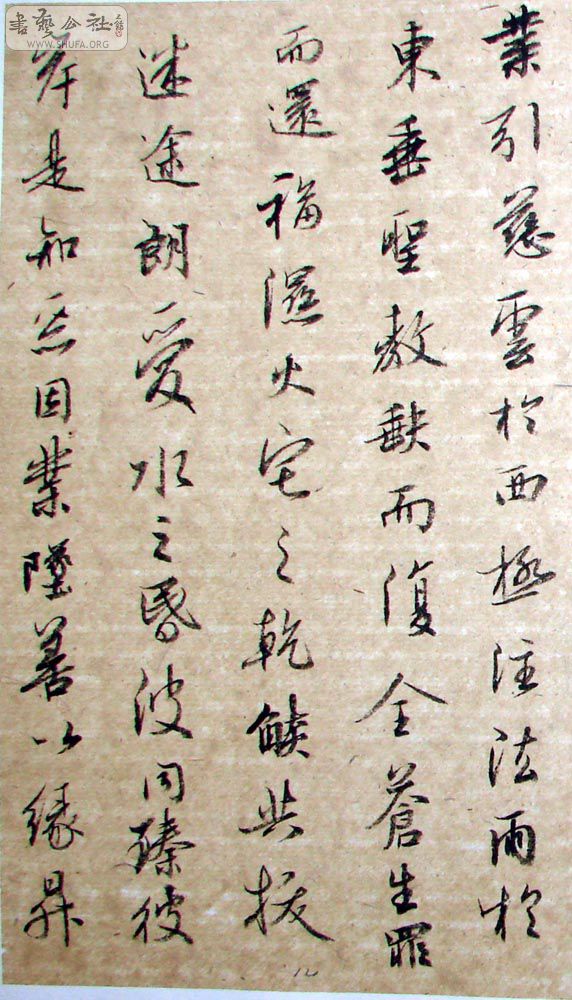 業引慈雲於西極注法雨於
東垂聖教缺而復全蒼生罪
而還福濕火宅之乾焰共拔
迷途朗愛水之昏波同臻彼
岸是知惡因業墜善以緣昇
書藝公社
WWW.SHUFA.ORG
12